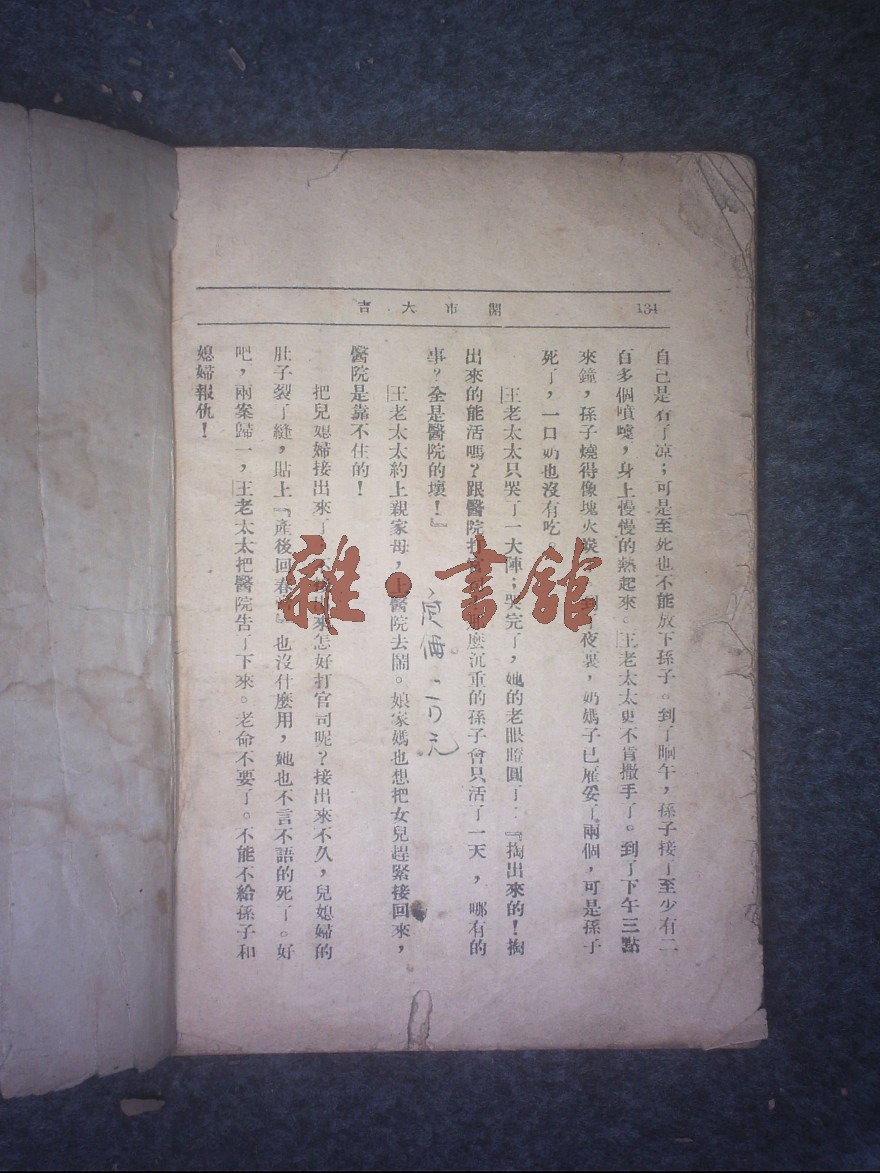 134
開市大吉
自己是着了凉；可是至死也不能放下孫子。到了晌午，孫子接了至少有二
百多個噴嚏，身上慢慢的熱起來。王老太太更不肯撒手了。到了下午三點
來鐘，孫子燒得像塊火炭 夜裏，奶媽子已雇妥了兩個，可是孫子
死了，一口奶也沒有吃。
王老太太只哭了一大陣；哭完了，她的老眼瞪圓了：『掏出來的！掏
出來的能活嗎？跟醫院打官 那麼沉重的孫子會只活了一天，哪有的
事？全是醫院的壞！』
王老太太約上親家母，上醫院去鬧。娘家媽也想把女兒趕緊接回來，
醫院是靠不住的！
把兒媳婦接出來了 來怎好打官司呢？接出來不久，兒媳婦的
肚子裂了縫，貼上『產後回春 』也沒什麼用，她也不言不語的死了。好
吧，兩案歸一，王老太太把醫院告了下來。老命不要了。不能不給孫子和
媳婦報仇！
定價 元
雜·書舘